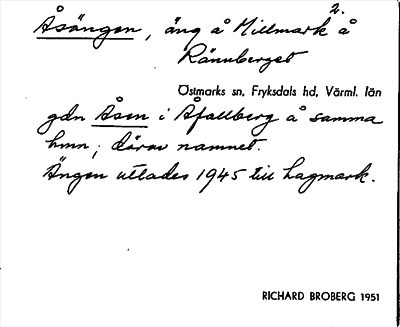 Åsängen, äng å Millmark 2. å
Rännberget
Östmarks sn, Fryksdals hd, Värml. län
gdn Åsen i Åfallberg å samma
hmn; därav namnet.
Ängen uttades 1945 till hagmark.
RICHARD BROBERG 1951